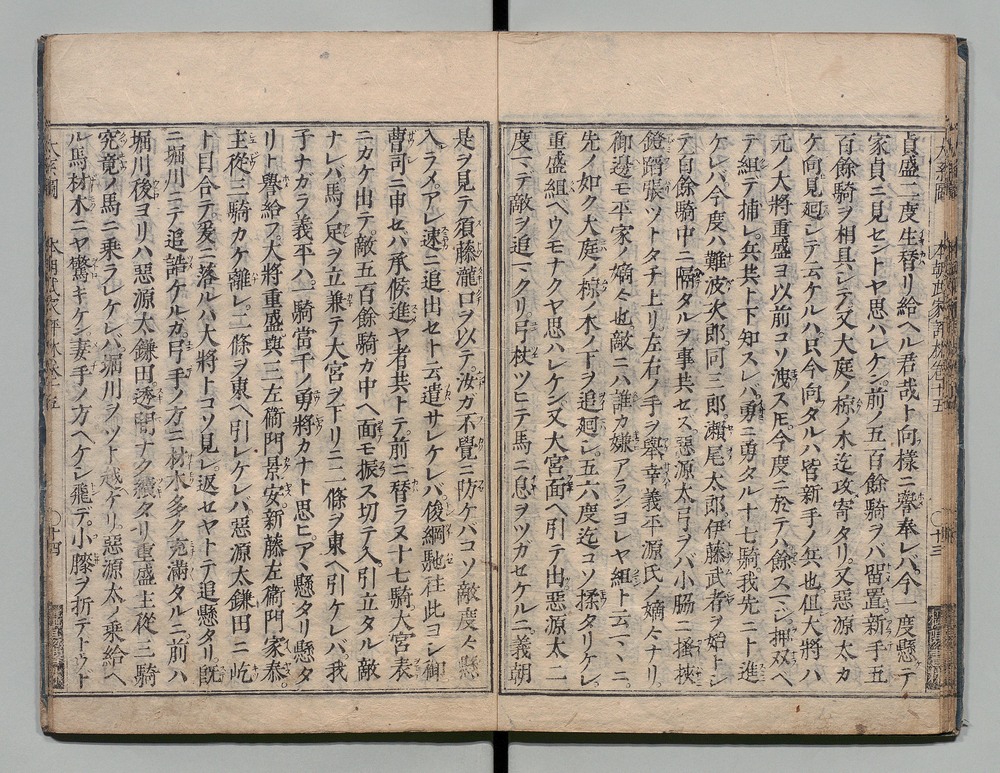 貞盛二度生替リ給ヘル君哉ト向様ニ譽奉レバ今一度懸テ
家貞ニ見セントヤ思ハレケン前ノ五百餘騎ヲバ留置新手五
百餘騎ヲ相具シテ又大庭ノ椋ノ木迄攻寄タリ又惡源太カ
ケ向見廻シテ云ケルハ只今向タルハ皆新手ノ兵也但大將ハ
元ノ大將重盛ヨ以前コソ洩ストモ今度ニ於テハ餘スマシ押双ヘ
テ組テ捕レ兵共ト下知スレバ勇ニ勇タル十七騎我先ニト進
ケレバ今度ハ難波次郎同三郎瀬尾太郎伊藤武者ヲ始トシ
テ百餘騎中ニ隔タルヲ事共セス惡源太弓ヲバ小脇ニ搔挾
鐙蹈張ツトタチ上リ左右ノ手ヲ擧幸義平源氏ノ嫡々ナリ
御邊モ平家ノ嫡々也敵ニハ誰カ嫌アランヨレヤ組ト云マヽニ
先ノ如ク大庭ノ椋ノ木ノ下ヲ追廻シ五六度迄コソ揉タリケレ
重盛組ヘウモナクヤ思ハレケン又大宮面ヘ引テ出惡源太二
度マデ敵ヲ追マクリ弓杖ツヒテ馬ニ息ヲツガセケルニ義朝
十三
是ヲ見テ須藤瀧口ヲ以テ汝ガ不覺ニ防ケバコソ敵度々懸
入ラメアレ速ニ追出セト云遣サレケレバ俊綱馳往此ヨシ御
曹司ニ申セバ承候進ヤ者共トテ前ニ替ラヌ十七騎大宮表
ニカケ出テ敵五百餘騎カ中ヘ面モ振ス切テ入引立タル敵
ナレハ馬ノ足ヲ立兼テ大宮ヲ下リニ二條ヲ東ヘ引ケレバ我
子ナガラ義平ハ一騎當千ノ勇將カナト思ヒアヽ懸タリ懸タ
リト譽給フ大將重盛與三左衞門景安新藤左衞門家泰
主從三騎カケ離レ二條ヲ東ヘ引レケレバ惡源太鎌田ニ屹
ト目合テ爰ニ落ルハ大將トコソ見レ返セヤトテ追懸タリ既
ニ堀川ニテ追詰ケルガ弓手ノ方ニ材木多ク充滿タルニ前ハ
堀川後ヨリハ惡源太鎌田透間ナク續タリ重盛主從三騎
究竟ノ馬ニ乗ラレケレバ堀川ヲツト越ケリ惡源太ノ乗給ヘ
ル馬材木ニヤ驚キケン妻手ノ方ヘケシ飛デ小膝ヲ折テトウト
十四